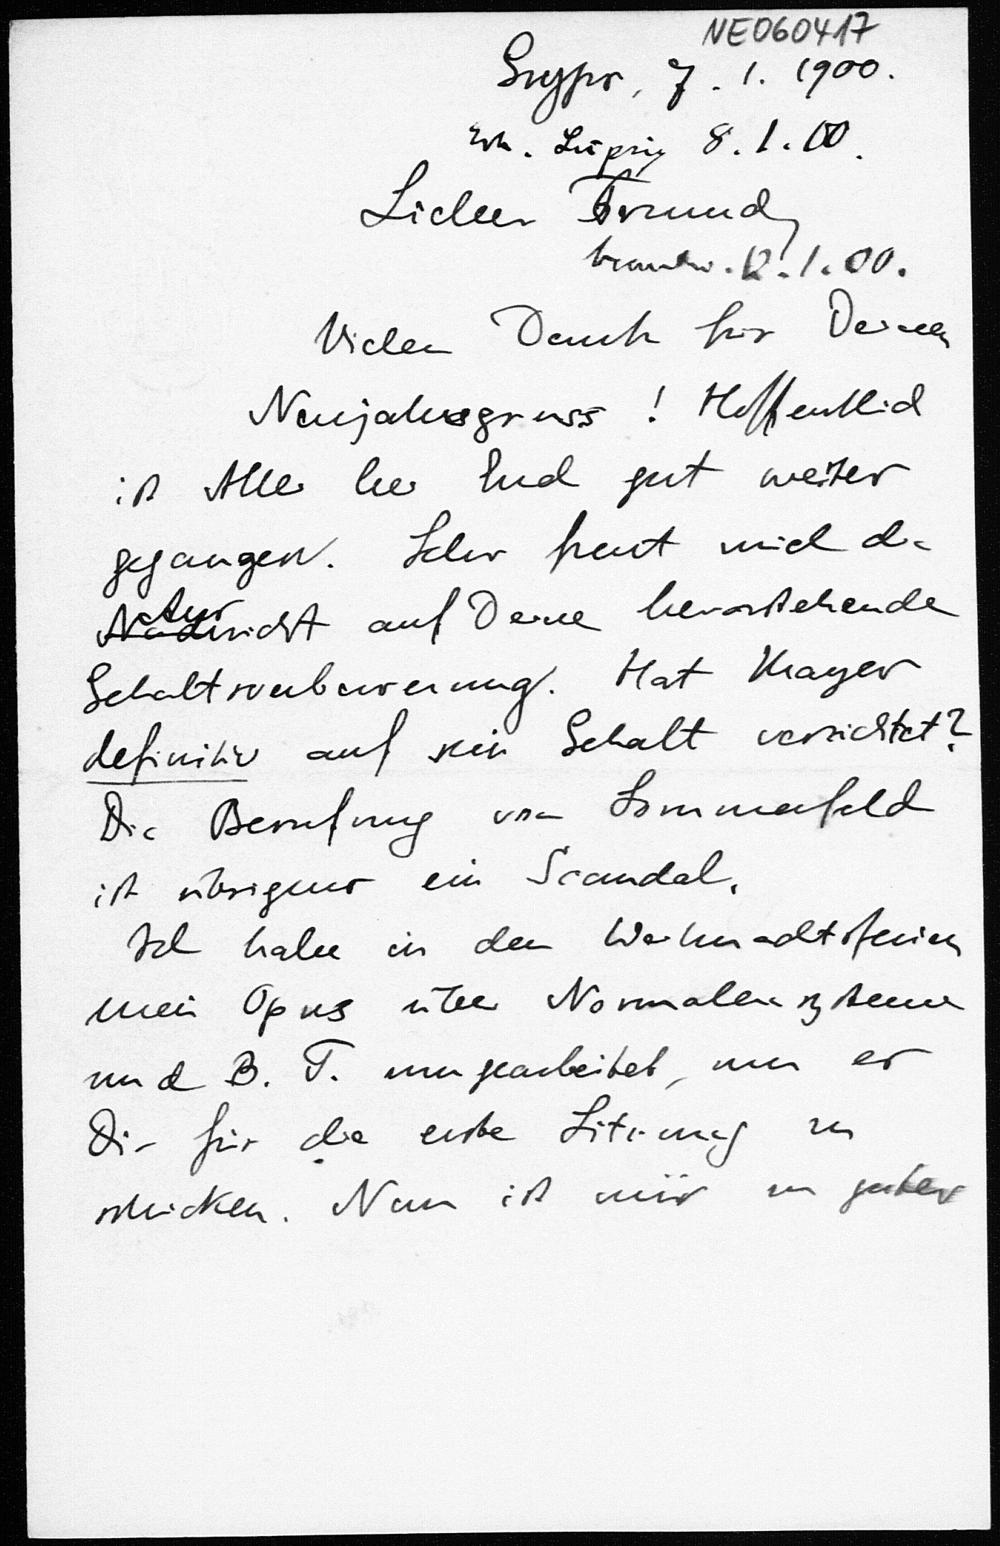 NE060417
Gryps, 7. 1. 1900.
Erh. Leipzig 8.1.00.
Lieber Freund,
beantw. 12.1.00.
Vielen Dank für Deinen
Neujahrsgruss! Hoffentlich
ist Alles bei Euch gut weiter
gegangen. Sehr freut mich die
auf Deine bevorstehende
Gehaltsverbesserung. Hat Mayer
definitiv auf sein Gehalt verzichtet?
Die Berufung von Sommerfeld
ist übrigens ein Scandal.
Ich habe in den Weihnachtsferien
mein Opus über Normalensysteme
und B. T. umgearbeitet, um es
Dir für die erste Sitzung zu
schicken. Nun ist mir zu guter